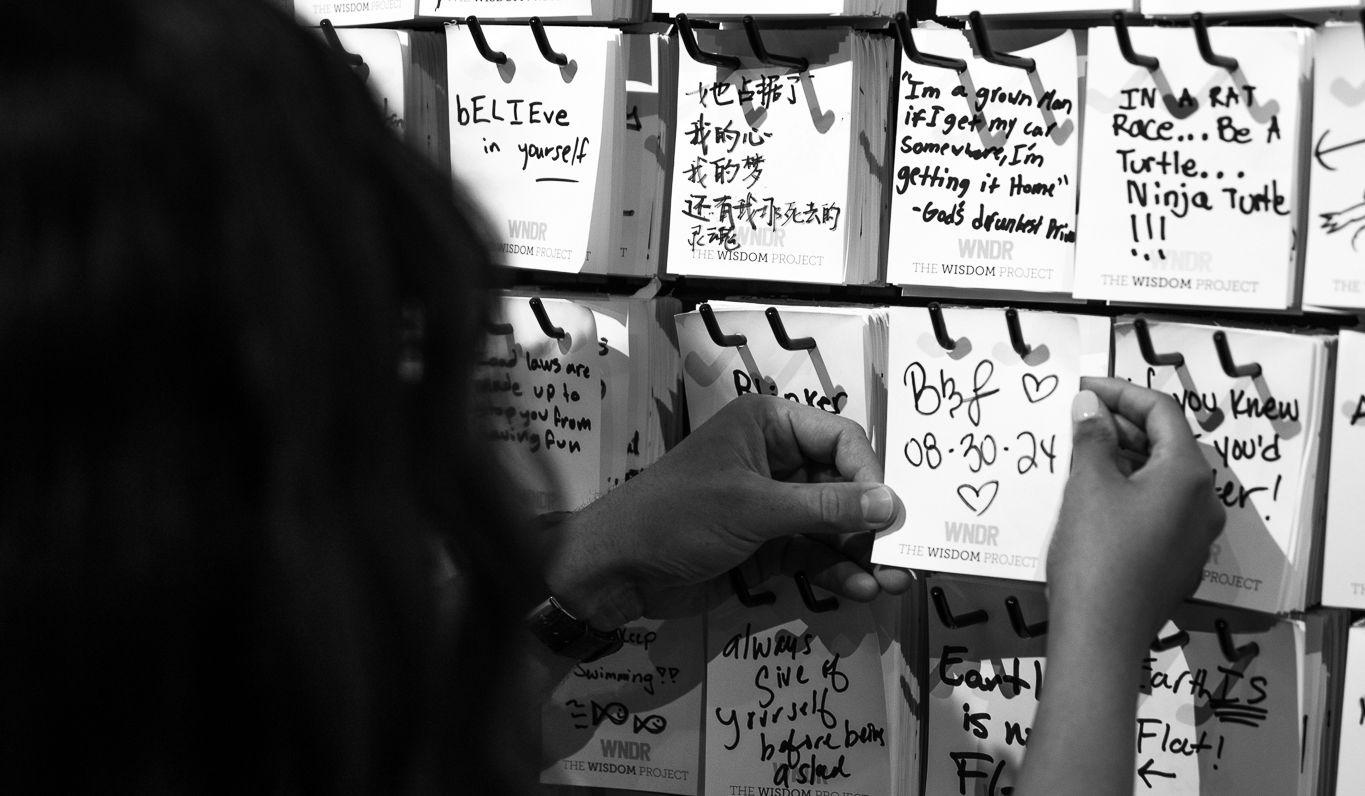 THE WISDOM PROJECT
bELIEve
in yourself
WNDR
WISDOM PROJECT
她占据了
我的心
我的梦
还有我那死去的
灵魂
WNDR
THE WISDOM PROJECT
"I'm a grown Man
if I get my car
Somewhere, I'm
getting it Home"
-God's drunkest
WNDR
THE WISDOM PROJECT
IN A RAT
Race... Be A
Turtle...
Ninja Turtle
!!!
WNDR
THE WISDOM PROJECT
laws are
up to
you from
fun
Blinker
Bbf ♡
08·30·24
♡
WNDR
THE WISDOM PROJECT
if
you Knew
you'd
PROJECT
Keep
Swimming!!
WNDR
THE WISDOM PROJECT
always
Give of
yourself
before being
asked
THE WISDOM PROJECT
Earth
is
Earth IS
Flat!
←